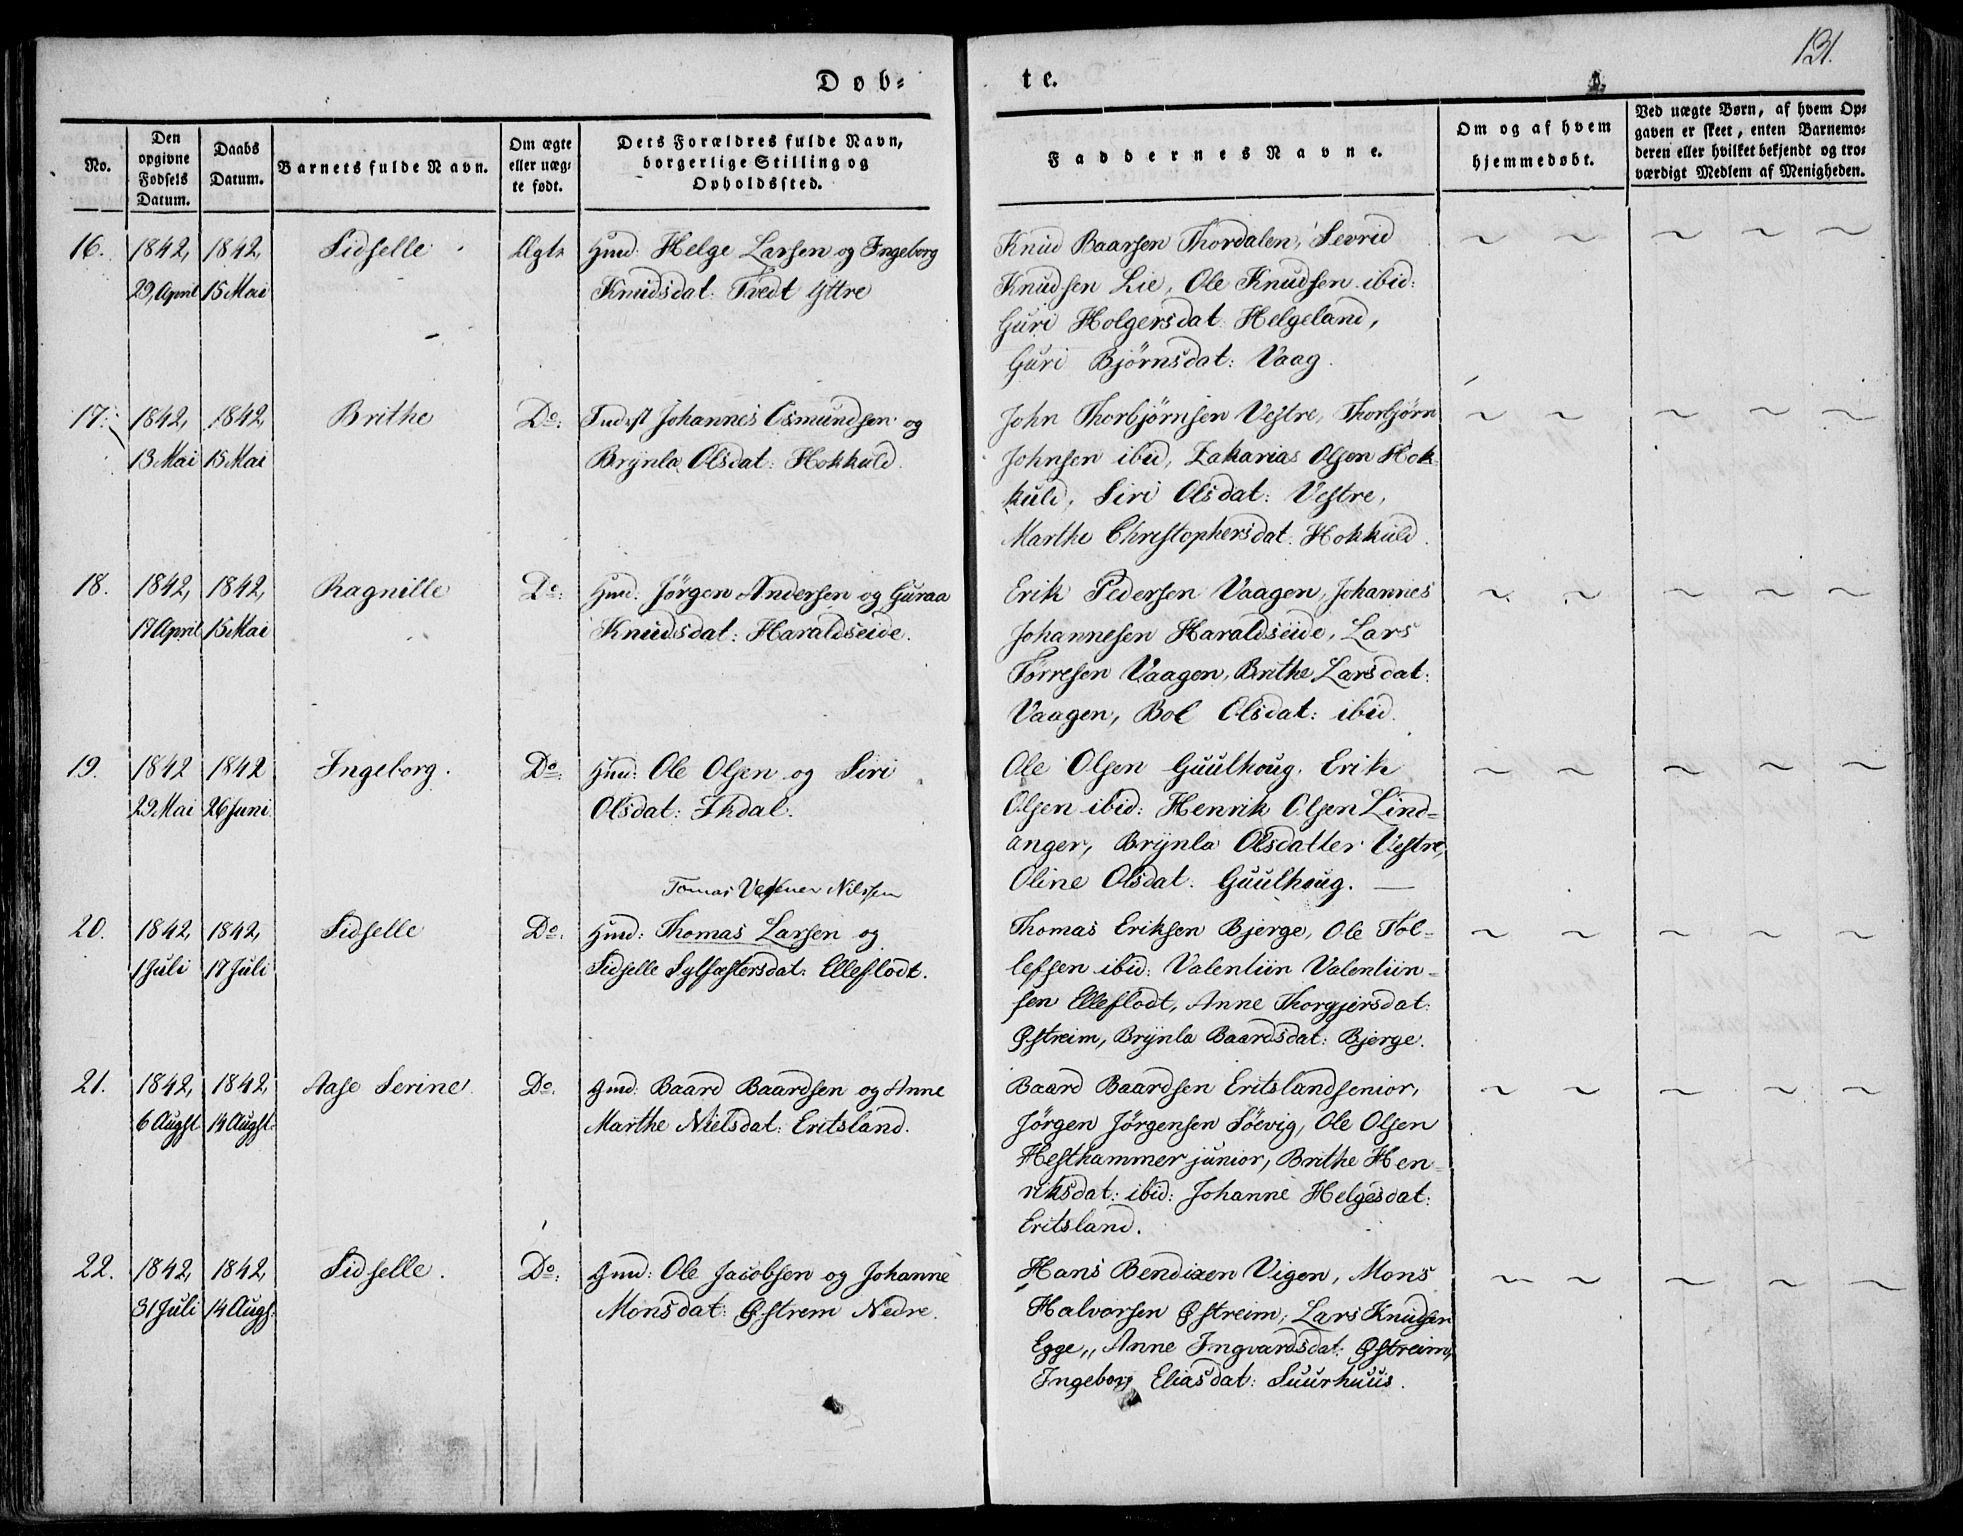 131.
Døb-
te.
No.
Den opgivne Fødsels Datum.
Daabs Datum.
Barnets fulde Navn.
Om ægte eller uægte født.
Dets Forældres fulde Navn, borgerlige Stilling og Opholdssted.
Faddernes Navne.
Om og af hvem hjemmedøbt.
Ved uægte Børn, af hvem Opgaven er skeet, enten Barnemoderen eller hvilket bekjendt og troværdigt Medlem af Menigheden.
16. 1842, 1842, Sidselle Ægte Gmd: Helge Larsen og Ingeborg
29, April 15 Mai Knudsdat: Tvedt Yttre
Knud Baarsen Thordalen, Sevrid
Knudsen Lie, Ole Knudsen ibid:
Guri Holgersdat: Helgeland,
Guri Bjørnsdat: Vaag.
17. 1842, 1842, Brithe Do: Inderst Johannes Osmundsen og
13 Mai 15 Mai Brÿnla Olsdat: Hokkuld.
John Thorbjørnsen Vestre, Thorbjørn
Johnsen ibid, Zakarias Olsen Hok-
kuld, Siri Olsdat: Vestre,
Marthe Christophersdat: Hokkuld.
18. 1842, 1842, Ragnille Do: Gmd: Jørgen Andersen og Guraa
17 April 15 Mai Knudsdat: Haraldseide.
Erik Pedersen Vaagen, Johannes
Johannesen Haraldseide, Lars
Tørresen Vaagen, Brithe Larsdat:
Vaagen, Bol Olsdat: ibid.
19. 1842 1842 Ingeborg. Do: Gmd: Ole Olsen og Siri
29 Mai 26 Juni Olsdat: Ihdal.
Ole Olsen Guulhoug. Erik
Olsen ibid: Henrik Olsen Lind-
anger, Brÿnla Olsdatter Vestre,
Oline Olsdat: Guulhoug. —
Tomas Nilssen
20. 1842, 1842, Sidselle Do: Gmd: Thomas Larsen og
1 Juli 17 Juli Sidselle Sylfæstersdat: Elleflodt.
Thomas Eriksen Bjerge, Ole Tol-
lefsen ibid: Valentiin Valentiin-
sen Elleflodt, Anne Thorgjersdat:
Østreim, Brÿnla Baardsdat: Bjerge.
21. 1842, 1842, Aase Serine Do: Gmd: Baard Baardsen og Anne
6 Augst 14 Augst. Marthe Nielsdat: Eritsland.
Baard Baardsen Eritsland senior,
Jørgen Jørgensen Søevig, Ole Olsen
Hesthammer junior, Brithe Hen-
riksdat: ibid: Johanne Helgesdat:
Eritsland.
22. 1842, 1842, Sidselle. Do: Gmd: Ole Jacobsen og Johanne
31 Juli 14 Augs: Monsdat: Østrem Nedre.
Hans Bendixen Vigen, Mons
Halvorsen Østreim, Lars Knudsen
Egge,, Anne Ingvardsdat: Østreim,
Ingeborg Eliasdat: Suurhuus.